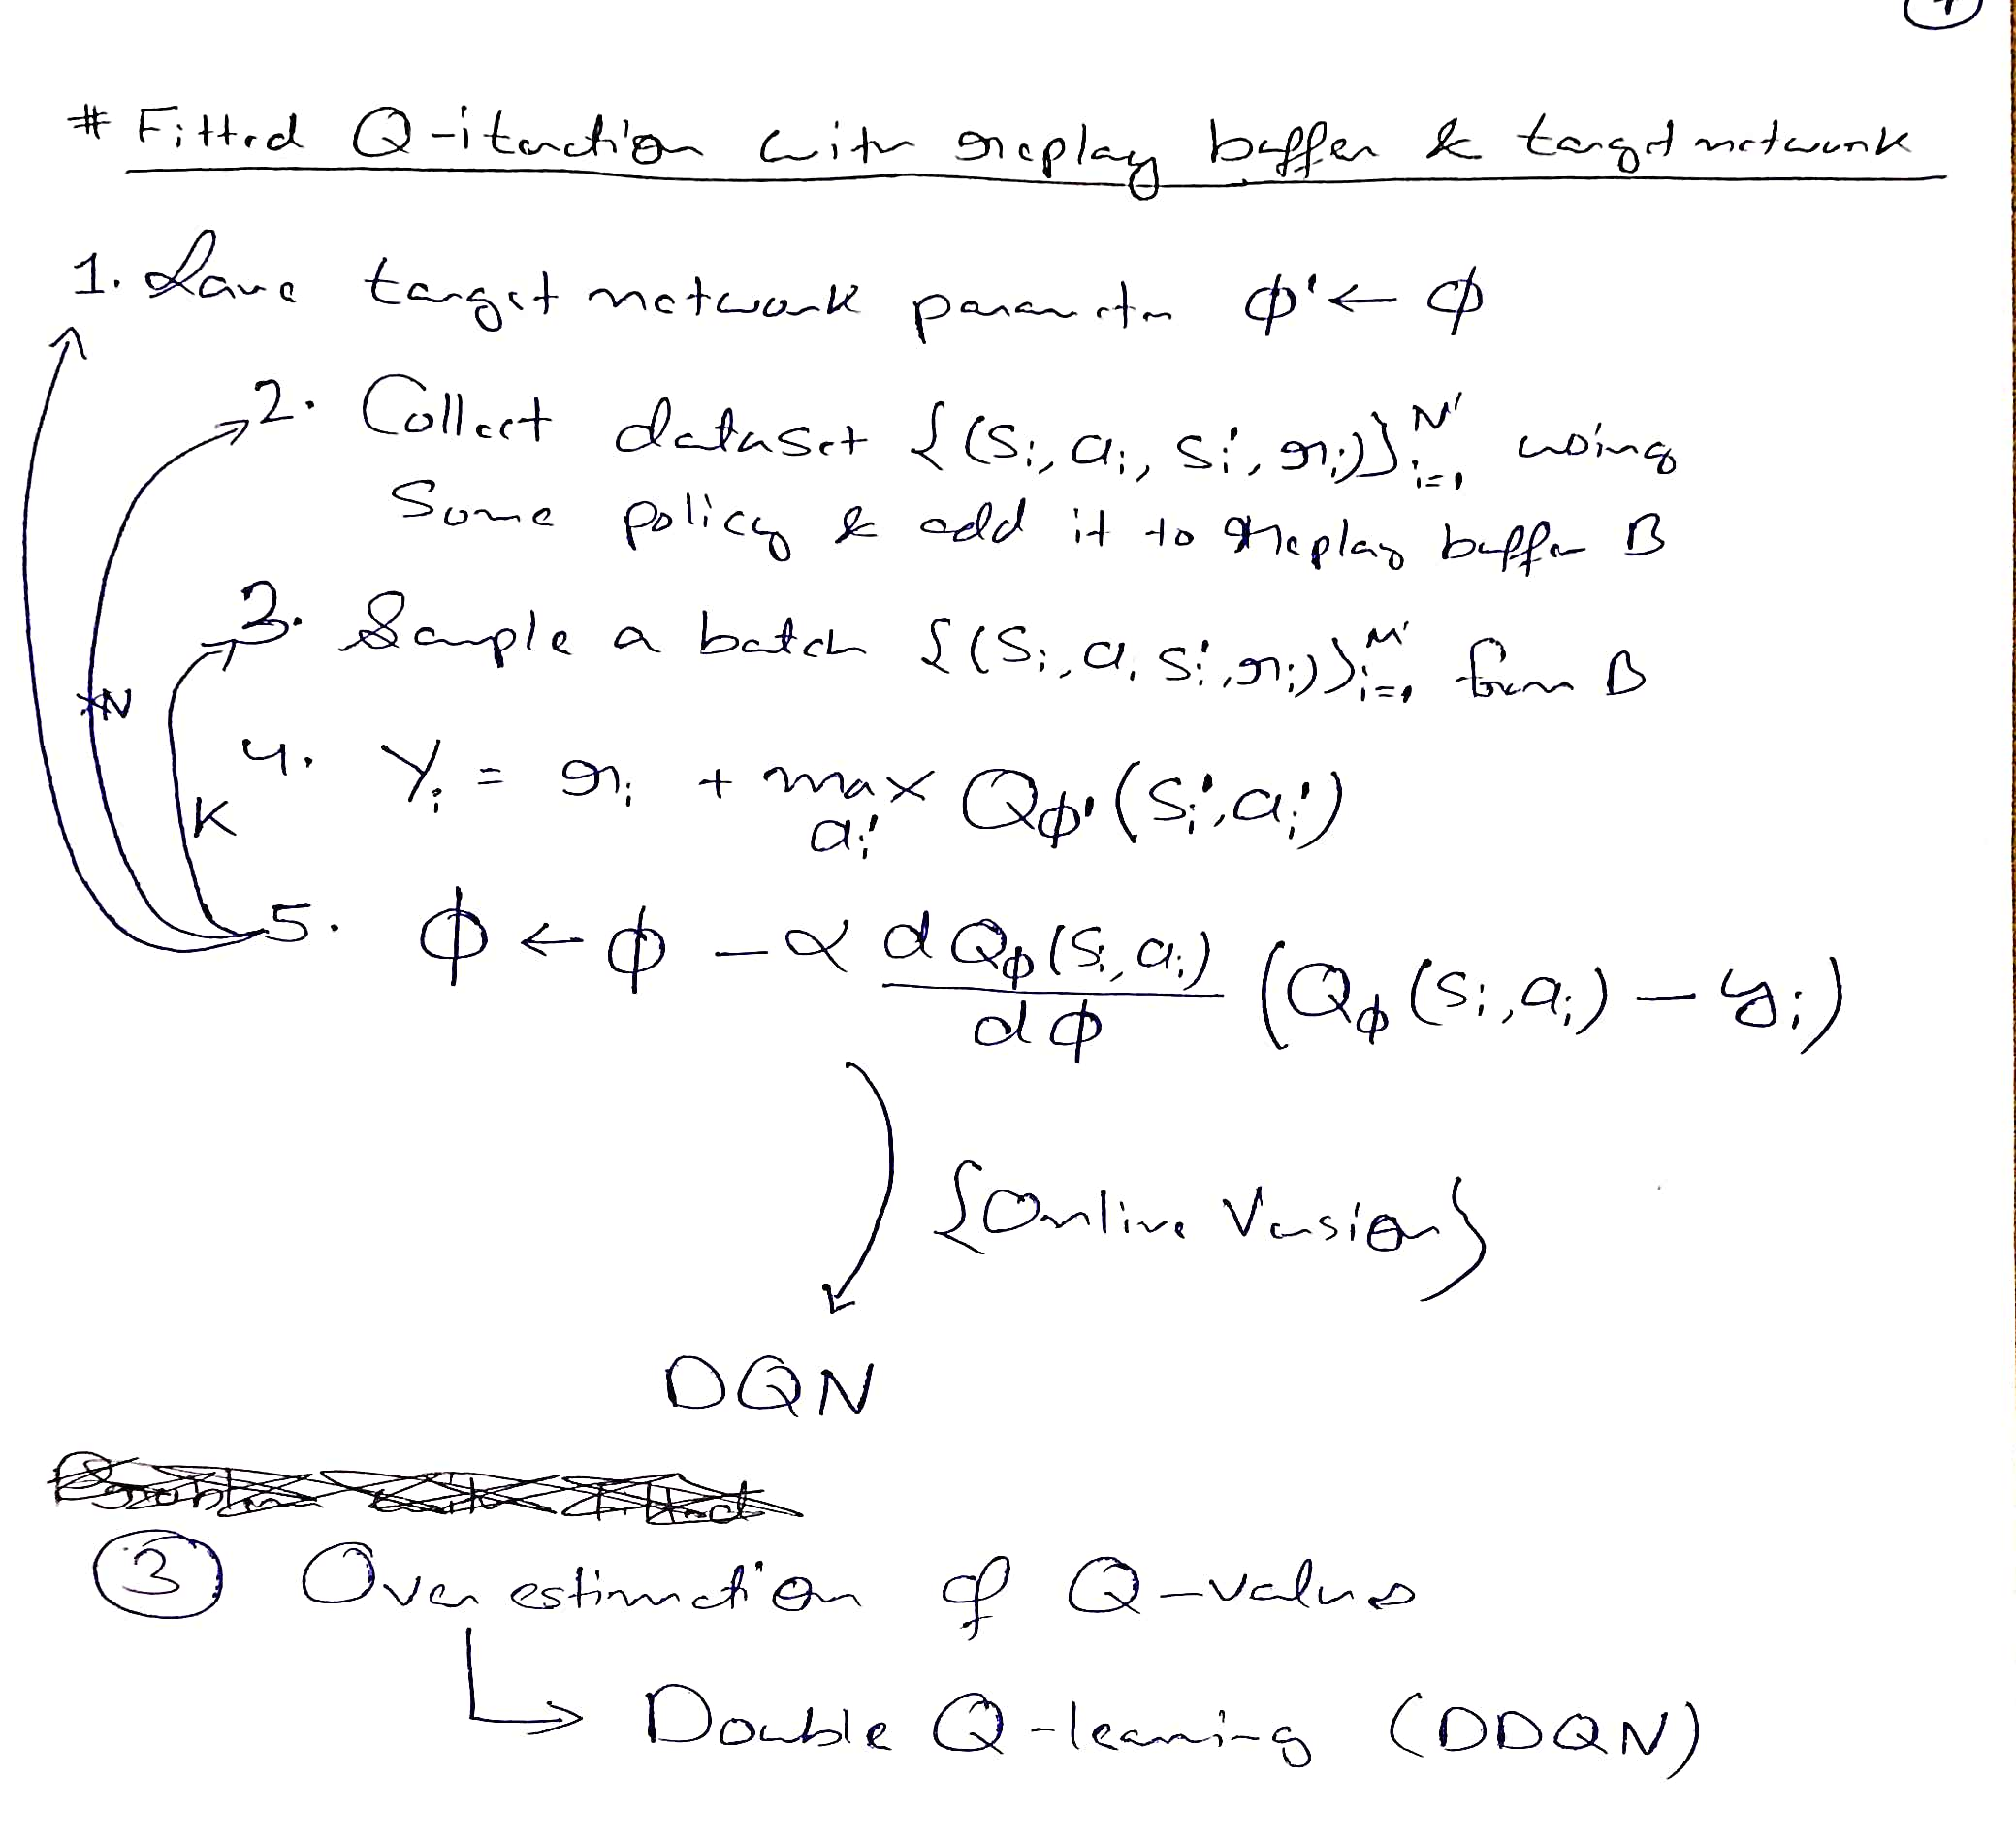 # Fitted Q-iteration with replay buffer & target network
1. Save target network parameter ϕ' ← ϕ
2. Collect dataset {(s_i, a_i, s_i', r_i)}_{i=1}^{N'} using
Some policy & add it to replay buffer B
3. Sample a batch {(s_i, a_i, s_i', r_i)}_{i=1}^{M'} from B
N
4. Y_i = r_i + max_{a_i'} Q_ϕ'(s_i', a_i')
K
5. ϕ ← ϕ - α dQ_ϕ(s_i, a_i)/dϕ (Q_ϕ(s_i, a_i) - y_i)
{Online Version}
DQN
③ Over estimation of Q-values
↳ Double Q-learning (DDQN)